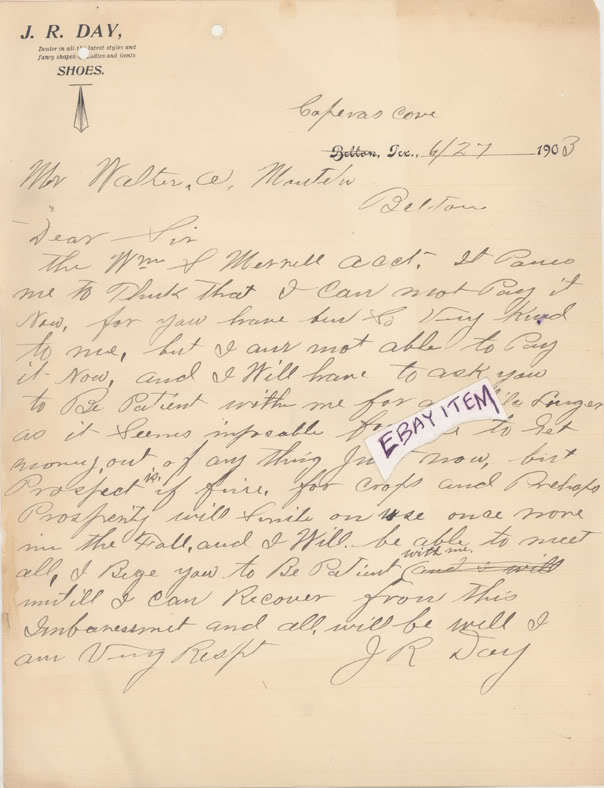 J. R. DAY,
Dealer in all the latest styles and
fancy shapes Ladies and Gents
SHOES.
Coperas Cove
Belton, Tex., 6/27 1903
Mr Walter, A,
Belton
Dear Sir
the Wm S Merrell acct. It Pains
me to Think that I Can not Pay it
Now, for you have bin So Very Kind
to me, but I am not able to Pay
it Now, and I Will have to ask you
to Be Patient with me for a Longer
as it Seems to Get
money, out of any thing Just now, but
Prospect is if fine, for Crops and Prehaps
Prosperity will Smile on use once more
in the Fall, and I Will be able to meet
all, I Bege you to Be Patient with me, and I will
untill I Can Recover from this
Imbaressmet and all, will be well I
am Very Respt J R Day
EBAY ITEM